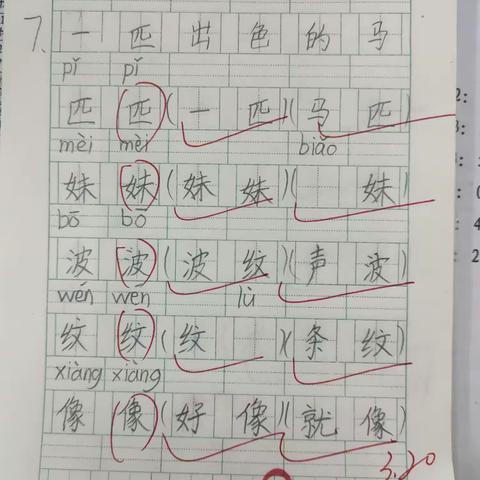 7、一匹出色的马
pǐ pǐ
匹 匹 (一匹)(马匹)
mèi mèi biǎo
妹 妹 (妹妹)( 妹)
bō bō
波 波 (波纹)(声波)
wén wén lù
纹 纹 (纹 )(条纹)
xiàng xiàng
像 像 (好像)(就像)
3.20